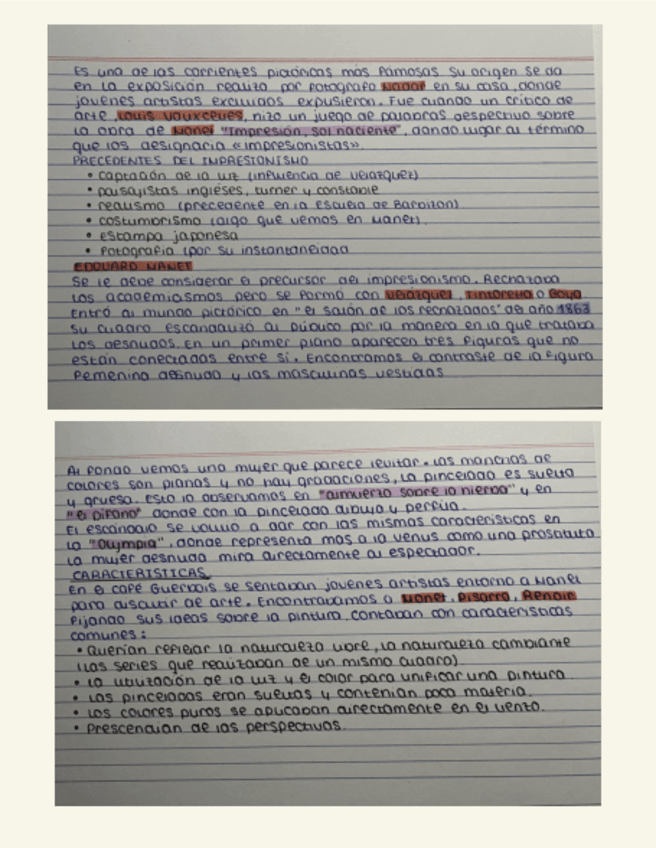 Es una de las corrientes pictóricas más famosas. Su origen se da
en la exposición realiza por fotografo Nadar en su casa, donde
jovenes artistas excluidos expusieron. Fue cuando un critico de
arte, Louis Vauxcelles, hizo un juego de palabras despectivo sobre
la obra de Manet "Impresión, sol naciente", dando lugar al término
que los designaria «impresionistas».
PRECEDENTES DEL IMPRESIONISMO
• captación de la luz (influencia de Velázquez)
• paisajistas ingleses, turner y constable
• realismo (precedente en la escuela de Barbizon)
• costumbrismo (algo que vemos en Manet).
• Estampa japonesa
• Fotografia (por su instantaneidad
EDOUARD MANET
Se le debe considerar el precursor del impresionismo. Rechazaba
los academiasmos pero se formó con Velázquez, Tintoretto o Goya
Entró al mundo pictórico en "el salón de los rechazados" del año 1863
Su cuadro escandalizó al público por la manera en la que trataba
los desnudos. En un primer plano aparecen tres figuras que no
están conectadas entre sí. Encontramos el contraste de la figura
femenina desnuda y las masculinas vestidas
Al fondo vemos una mujer que parece levitar. Las manchas de
colores son planas y no hay gradaciones, la pincelada es suelta
y gruesa. Esto lo observamos en "almuerzo sobre la hierba" y en
"el pífano" donde con la pincelada dibuja y perfila.
El escándalo se volvió a dar con las mismas características en
la "Olympia", donde representa más a la venus como una prostituta
La mujer desnuda mira directamente al espectador.
CARACTERÍSTICAS
En el café Guerbois se sentaban jóvenes artistas entorno a Manet
para discutir de arte. Encontrabamos a Monet, Pisarro, Renoir
Fijando sus ideas sobre la pintura contaban con características
comunes:
• Querían reflejar la naturaleza libre, la naturaleza cambiante
(las series que realizaban de un mismo cuadro)
• La utilización de la luz y el color para unificar una pintura.
• Las pinceladas eran sueltas y contenían poca materia.
• Los colores puros se aplicaban directamente en el lienzo.
• Prescendían de las perspectivas.